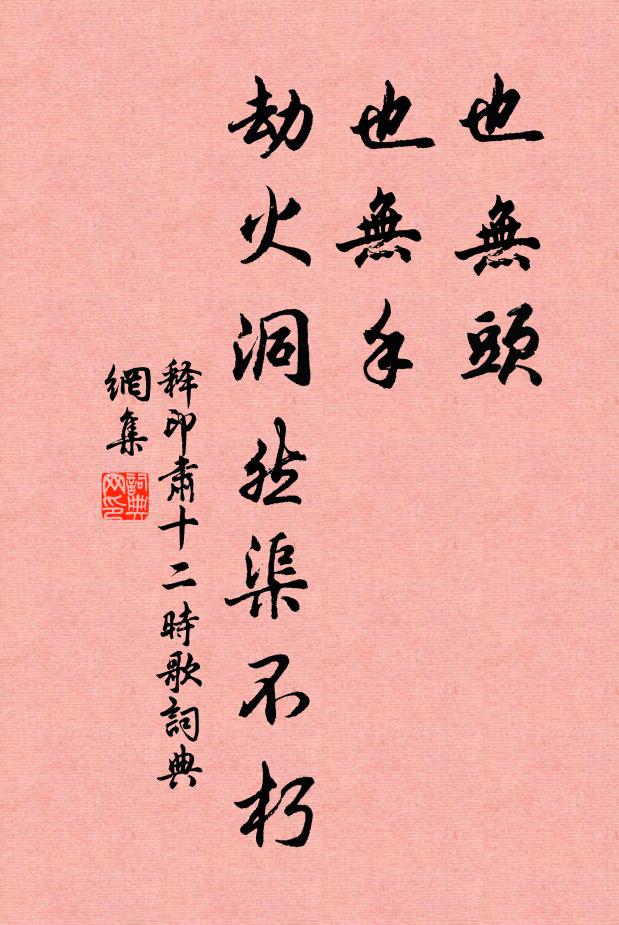 也無頭
也無手
劫火洞然渠不朽
释印肃十二時歌詞典
網集
詞典
网印